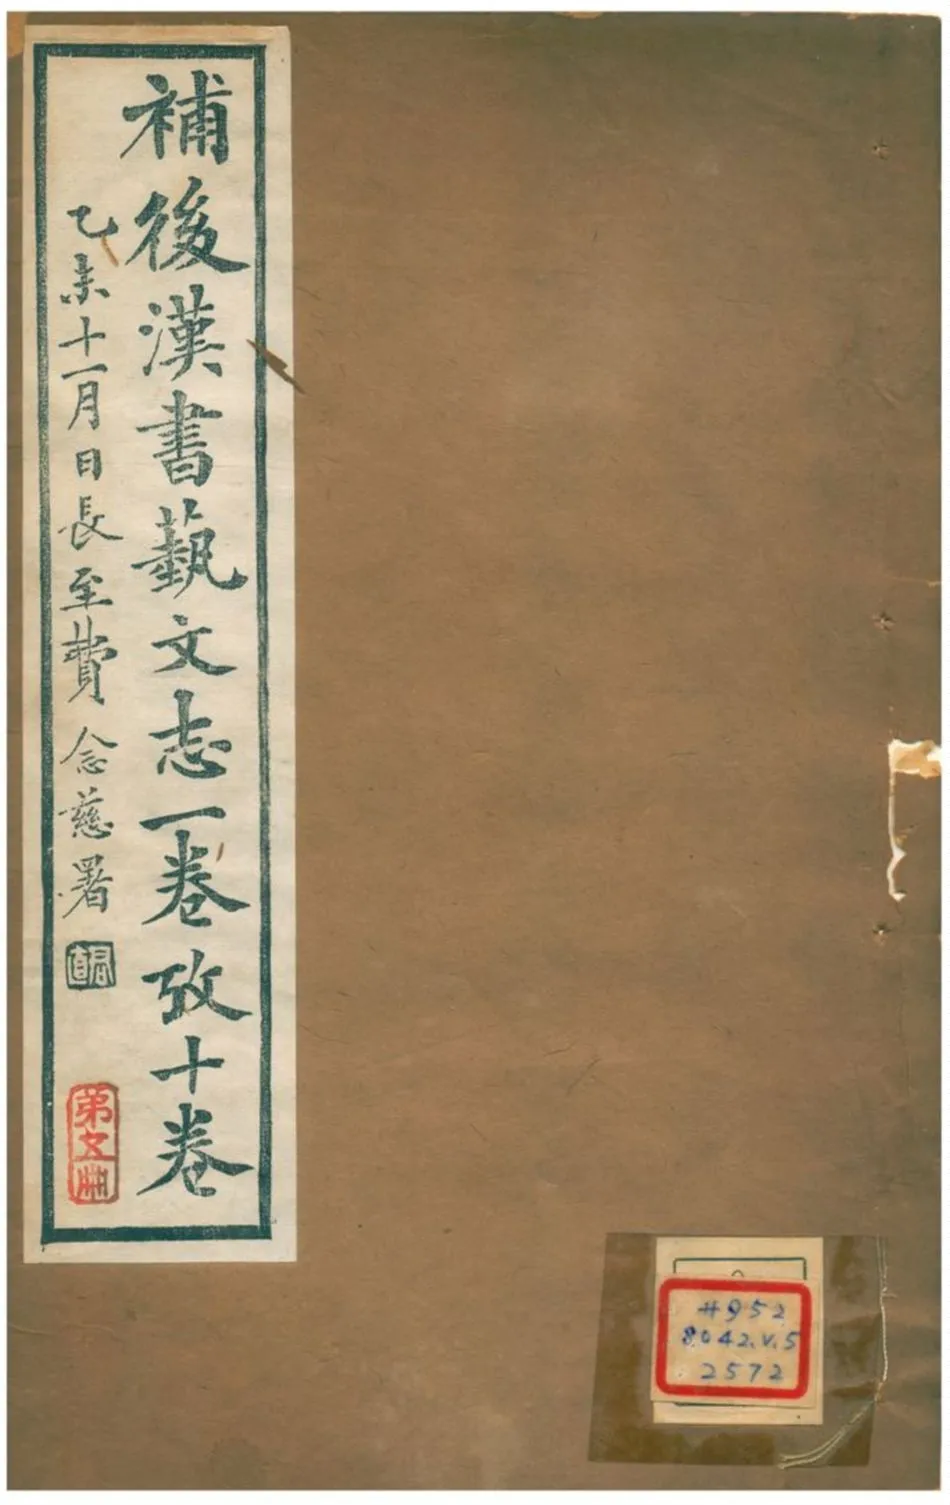 補後漢書藝文志一卷攷十卷
乙未十一月日長至費念慈署
君直
第五冊
#952
8042.v.5
2572